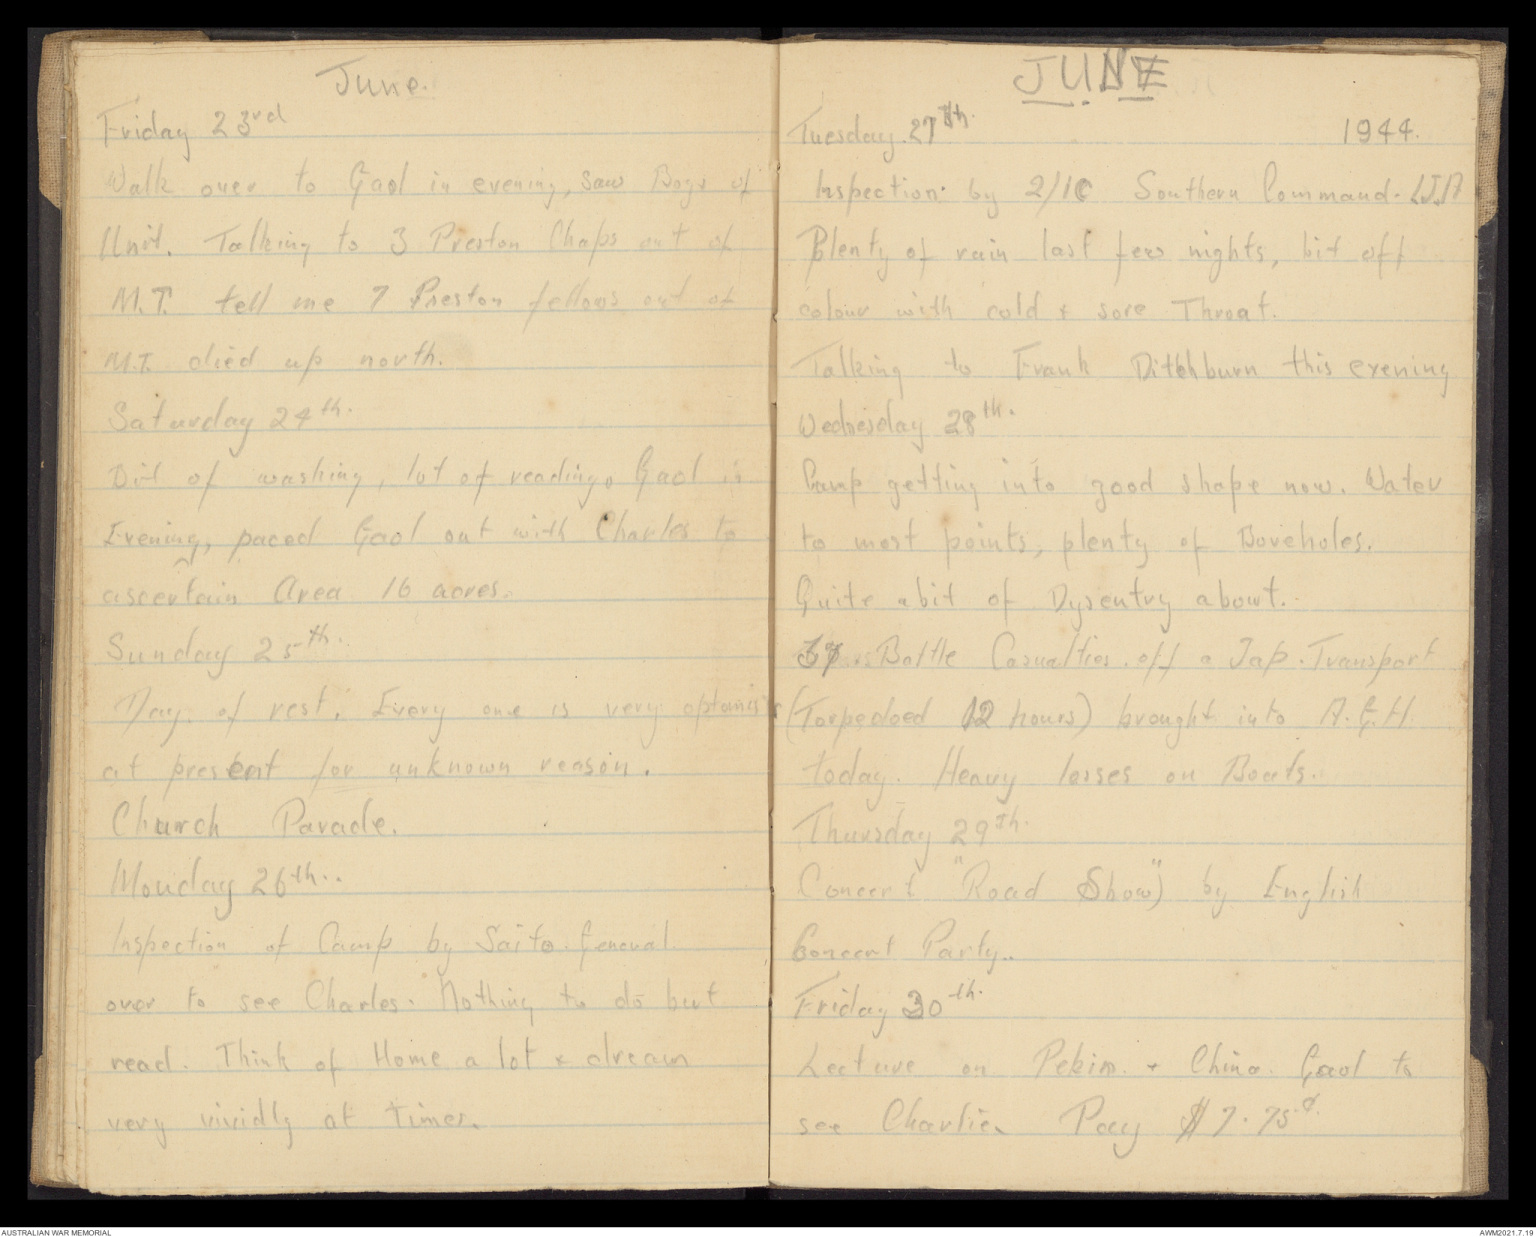 June.
Friday 23rd
Walk over to Gaol in evening, saw Boys of
Unit. Talking to 3 Preston Chaps out of
M.T. tell me 7 Preston fellows out of
M.T. died up north.
Saturday 24th.
Bit of washing, lot of reading. Gaol in
Evening, paced Gaol out with Charles to
ascertain Area 16 acres.
Sunday 25th.
Day. of rest. Every one is very
at present for unknown reason.
Church Parade.
Monday 26th..
Inspection of Camp by Saito. General.
over to see Charles. Nothing to do but
read. Think of Home a lot & dream
very vividly at times.
JUNE
Tuesday. 27th. 1944.
Inspection. by Southern Command. IJA
Plenty of rain last few nights, bit off
colour with cold & sore Throat.
Talking to Frank Ditchburn this evening
Wednesday 28th.
Camp getting into good shape now. Water
to most points, plenty of Boreholes.
Quite a bit of Dysentry about.
Battle Casualties. off a Jap. Transport
(Torpedoed 12 hours) brought into A.G.H.
today. Heavy losses on Boats.
Thursday 29th.
Concert "Road Show") by English
Concert Party..
Friday 30th.
Lecture on Pekin. & China. Gaol to
see Charlie. Pay $7.75.¢.
AUSTRALIAN WAR MEMORIAL
AWM2021.7.19